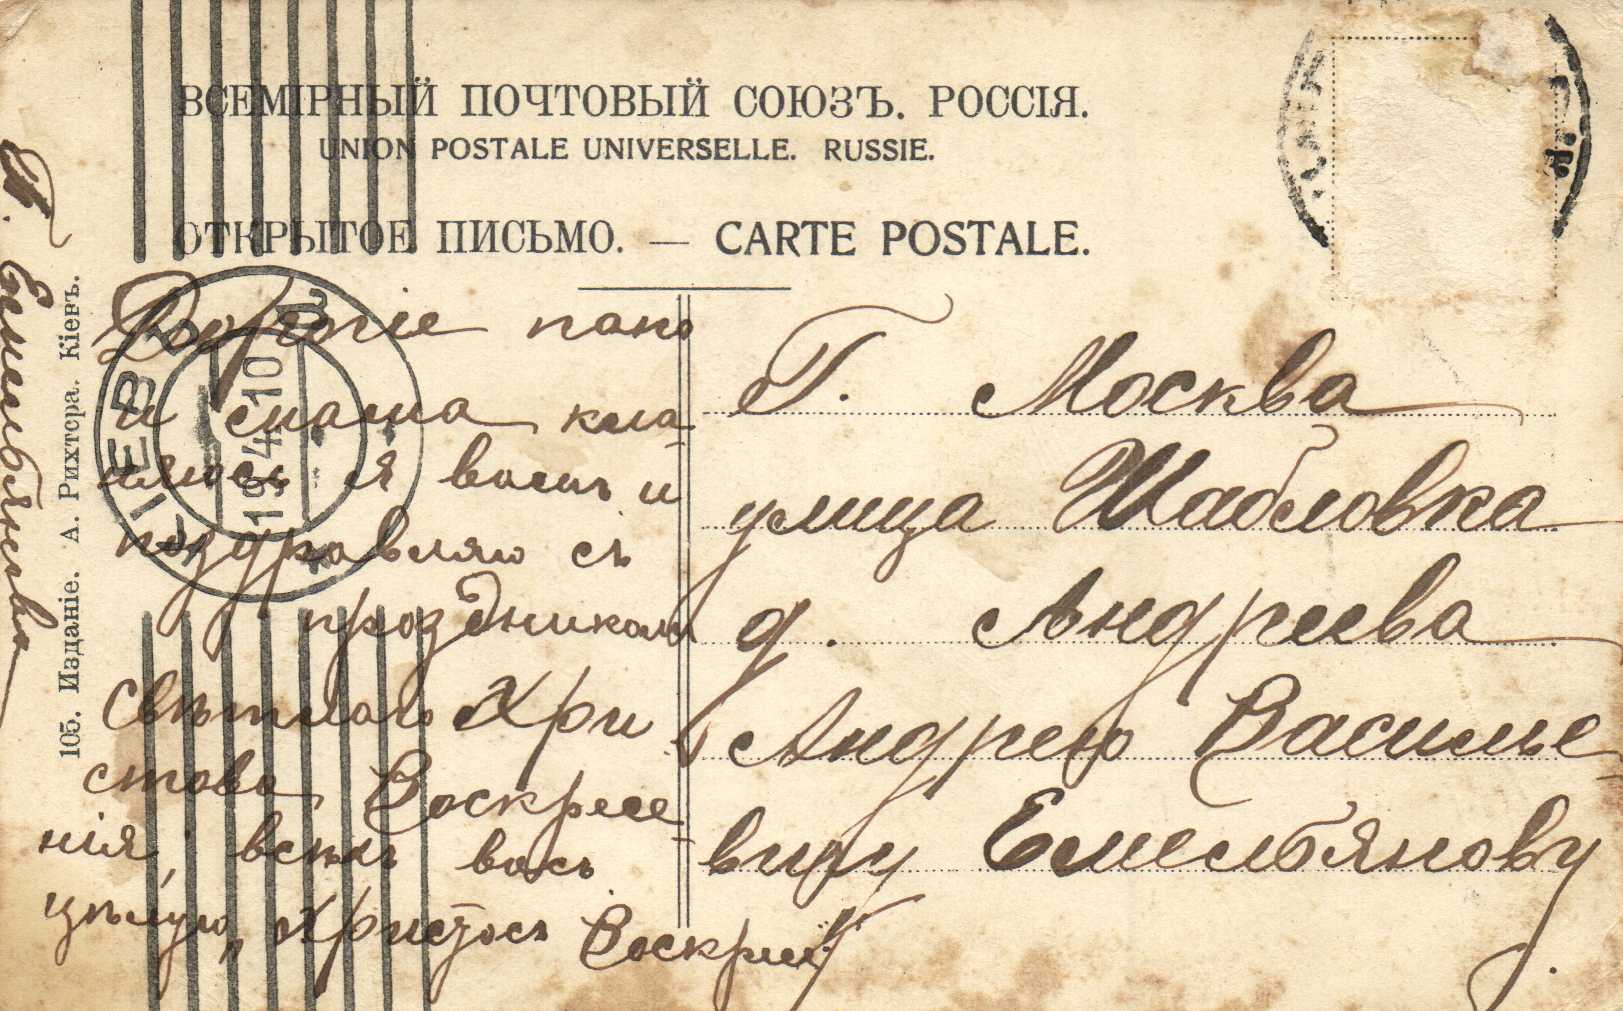 ВСЕМІРНЫЙ ПОЧТОВЫЙ СОЮЗЪ. РОССІЯ.
UNION POSTALE UNIVERSELLE. RUSSIE.
ОТКРЫТОЕ ПИСЬМО. — CARTE POSTALE.
Дорогіе папа
и мама кла-
няюсь я вамъ и
поздравляю съ
праздникомъ
Свѣтлаго Хри
стова Воскресе-
нія, всѣхъ васъ
цѣлую, „Христосъ Воскресе"
Г. Москва
улица Шабловка
д. Андреева
Андрею Василье-
вичу Емельянову
105. Изданіе. А. Рихтера. Кіевъ.
Емельянова
КІЕВЪ
19 4 10